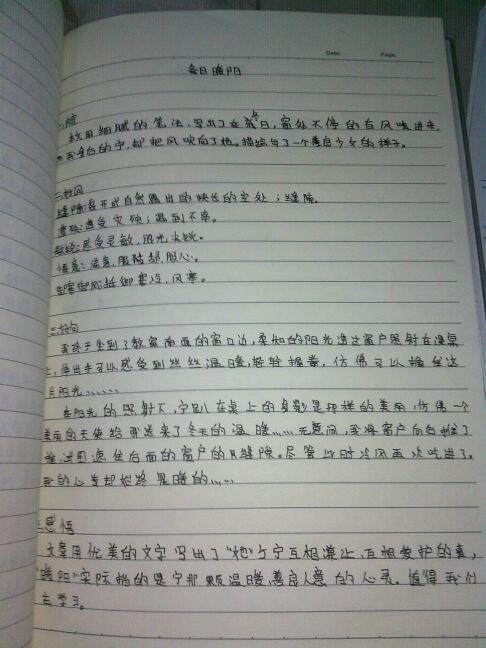 Date: Page:
冬日暖阳
本文用细腻的笔法,写出了在冬日,窗外不停的有风吹进来,
的宁,却把风吹向了她。描绘出了一个善良少女的样子。
二好词
缝隙:裂开或自然露出的狭长的空处;缝隙。
遭殃:遭受灾殃;遇到不幸。
敏锐:感受灵敏,眼光尖锐。
惬意:满意,舒服,称心。
御寒:抵御寒冷,风寒。
三好句
我终于坐到了教室南面的窗口边,柔和的阳光透过窗户照射在课桌
上,伸出手可以感受到丝丝温暖,轻轻握拳,仿佛可以握住这
阳光……
在阳光的照射下,宁趴在桌上的身影是那样的美丽,仿佛一个
美丽的天使给我送来了冬天的温暖……无意间,我将窗户向右推了
推,试图遮住后面的窗户的缝隙。尽管此时冷风再次吹进了。
我的心里却始终是暖的……
感悟
文章用优美的文字写出了“她”与宁互相谦让,互相爱护的事,
“暖阳”实际指的是宁那颗温暖,善良人意的心灵。值得我们
去学习。